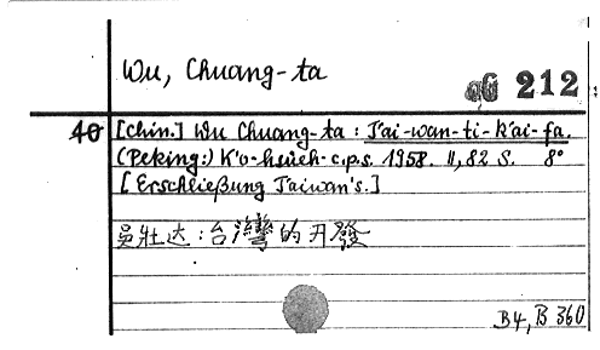 Wu, Chuang-ta
212
40 [chin.] Wu Chuang-ta : T'ai-wan-ti-k'ai-fa.
(Peking:) K'o-hsüeh-c.p.s. 1958. II, 82 S. 8°
[Erschließung Taiwan's.]
吴壮达 : 台灣的开發
B4, B 360